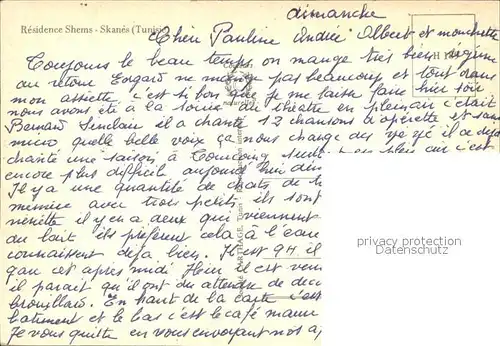 dimanche
Résidence Shems - Skanès (Tunisie)
Chère Pauline Andrée Albert et mounette
Toujours le beau temps, on mange très bien régime
au retour Edgard ne mange pas beaucoup et tout dans
mon assiette c'est si bon que je me laisse faire hier soir
nous avons été à la soirée du théâtre en plein air c'était
Bernard Sinclair il a chanté 12 chansons d'opérette et sans
micro quelle belle voix ça nous change des yéyé il a déjà
chanté une saison à Tourcoing
encore plus difficile aujourd'hui
Il y a une quantité de chats de
mémère avec trois petits ils sont
il y en a deux qui viennent
du lait ils préfèrent cela à l'eau
connaissent déjà bien. Il est 9H il
cet après midi Hier il est
il paraît qu'il ont du attendre
brouillard. En haut de la carte c'est
batiment et le bas c'est le café
Je vous quitte en vous envoyant nos
CARTHAGE
privacy protection
oldthing.de